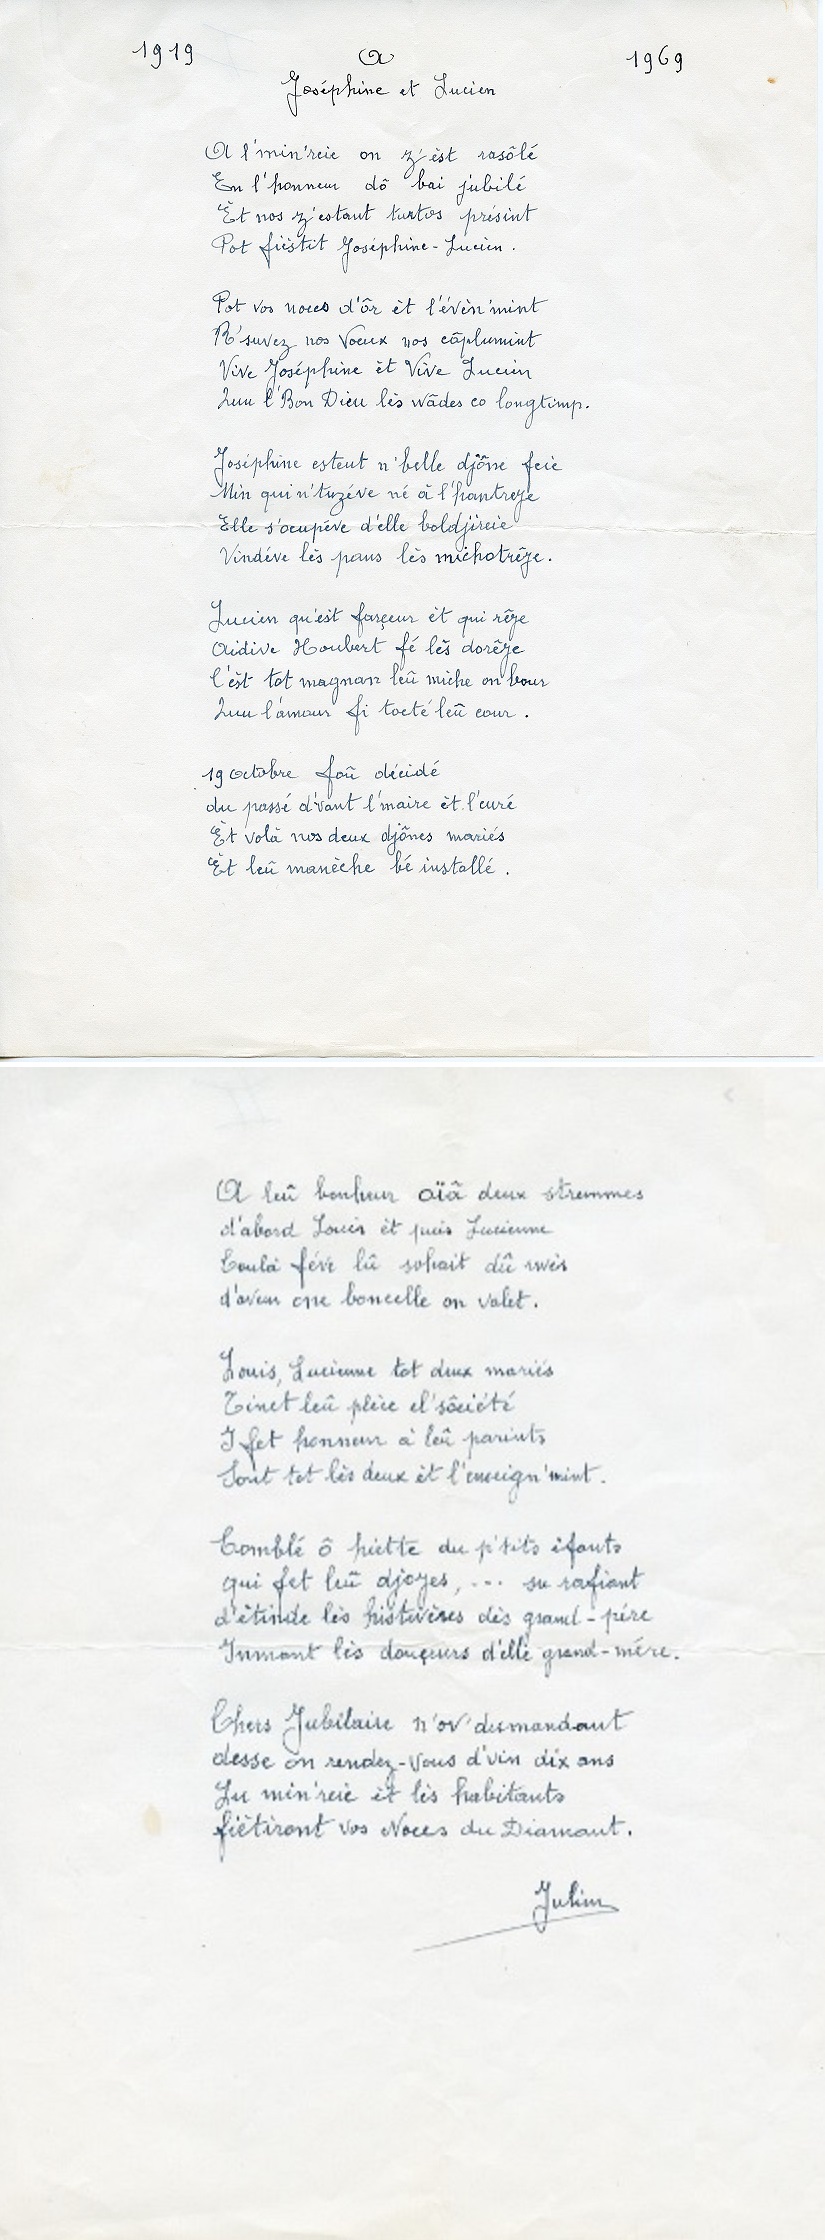 1919 A 1969
Joséphine et Lucien
A l'min'reie on z'èst rasôlé
En l'honneur dô bai jubilé
Èt nos z'estant turtos présint
Pot fièstit Joséphine-Lucien.
Pot vos noces d'ôr èt l'évèn'mint
R'suvez nos Voeux nos câplumint
Vive Joséphine èt Vive Lucien
Quu l'Bon Dieu lès wâdes co longtimp.
Joséphine esteut n'belle djône feie
Min qui n'tuzéve né à l'hantreye
Elle s'ocupéve d'elle boldjireie
Vindéve lès pans lès michotrêye.
Lucien qu'est farçeur èt qui rêye
Aidive Houbert fé lès dorêye
C'èst tot magnan leû miche on bour
Quu l'amour fi tocté leû cour.
19 octobre foû décidé
du passé d'vant l'maire èt l'curé
Èt volà nos deux djônes mariés
Èt leû manèche bé installé.
A leû bonheur oïâ deux stremmes
d'abord Louis èt puis Lucienne
Coulà féve lû sohait dû rwès
d'aveur one boncelle on valet.
Louis, Lucienne tot deux mariés
Tinet leû plèce el'sôciété
I fet honneur à leû parints
Sont tot lès deux èt l'enseign'mint.
Comblé ô hiette du p'tits èfants
qui fet leû djoyes, ... su rafiant
d'ètinde lès histwères dès grand-père
Inmant lès douçeurs d'elle grand-mère.
Chers Jubilaire n'ov'dumandant
desse on rendez-vous d'vin dix ans
Lu min'reie èt lès habitants
fiètiront vos Noces du Diamant.
Julien